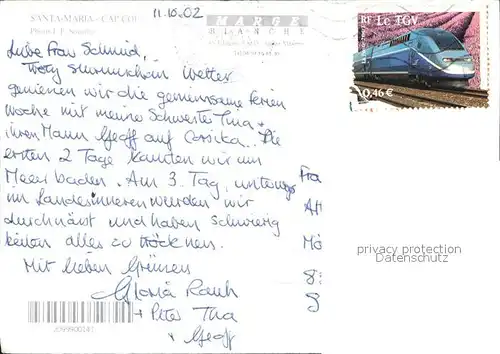 SANTA-MARIA - CAP CO
11.10.02
MARGE
BLANCHE
RF Le TGV
0,46 €
Liebe Frau Schmid,
Trotz stürmischen Wetter
genienen wir die gemeinsame Ferien
woche mit meine Schwester Tina +
ihren Mann Geoff auf Corsika. Die
ersten 2 Tage kanten wir im
Meer baden. Am 3. Tag, unterwegs
im Landesinneren wurden wir
durchnäst und haben schwierig
keiten alles zo tröcknen.
Mit lieben Grünen
Gloria Rauh
+ Peter Tina
+ Geoff
Fra
privacy protection
Datenschutz